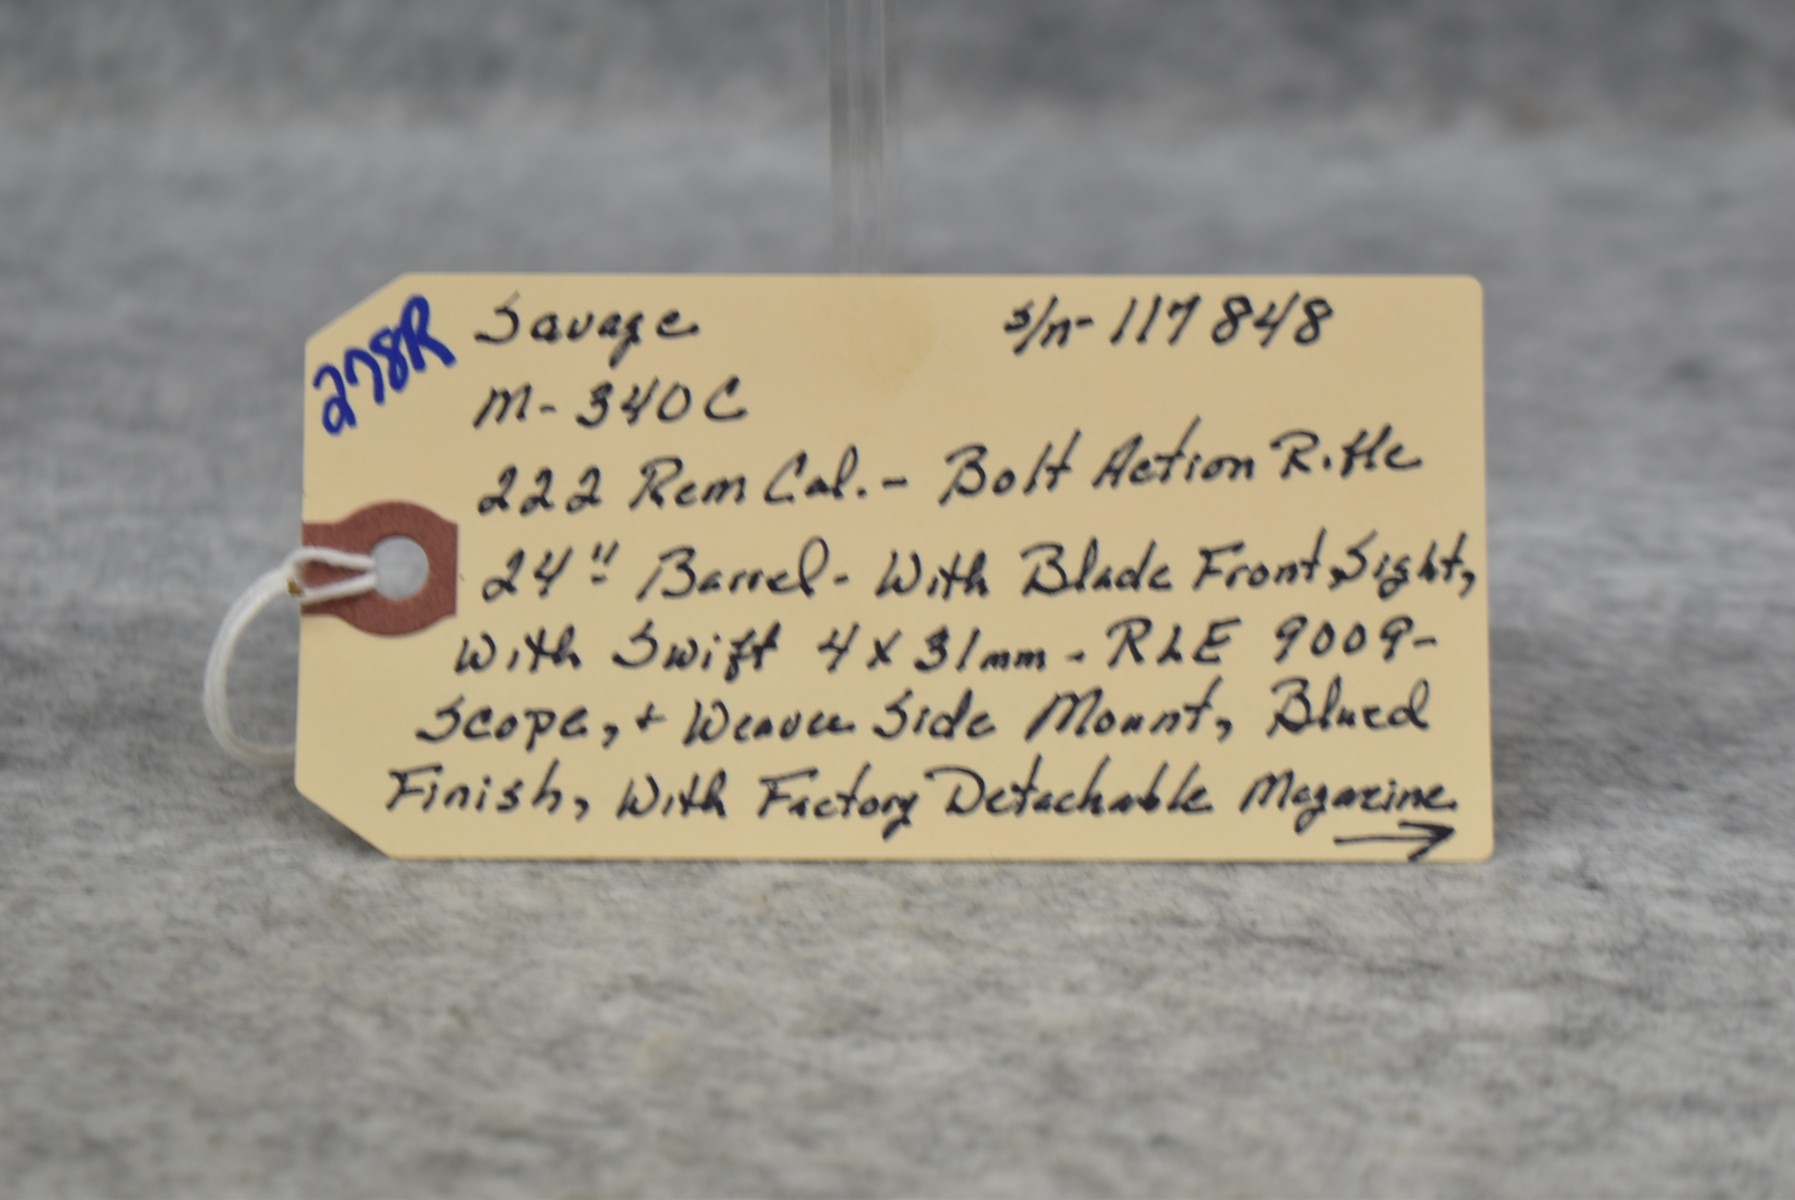 278R
Savage s/n- 117848
M- 340C
222 Rem Cal. - Bolt Action Rifle
24" Barrel - With Blade Front Sight,
With Swift 4x31mm - RLE 9009-
Scope, + Weaver Side Mount, Blued
Finish, With Factory Detachable Magazine
→